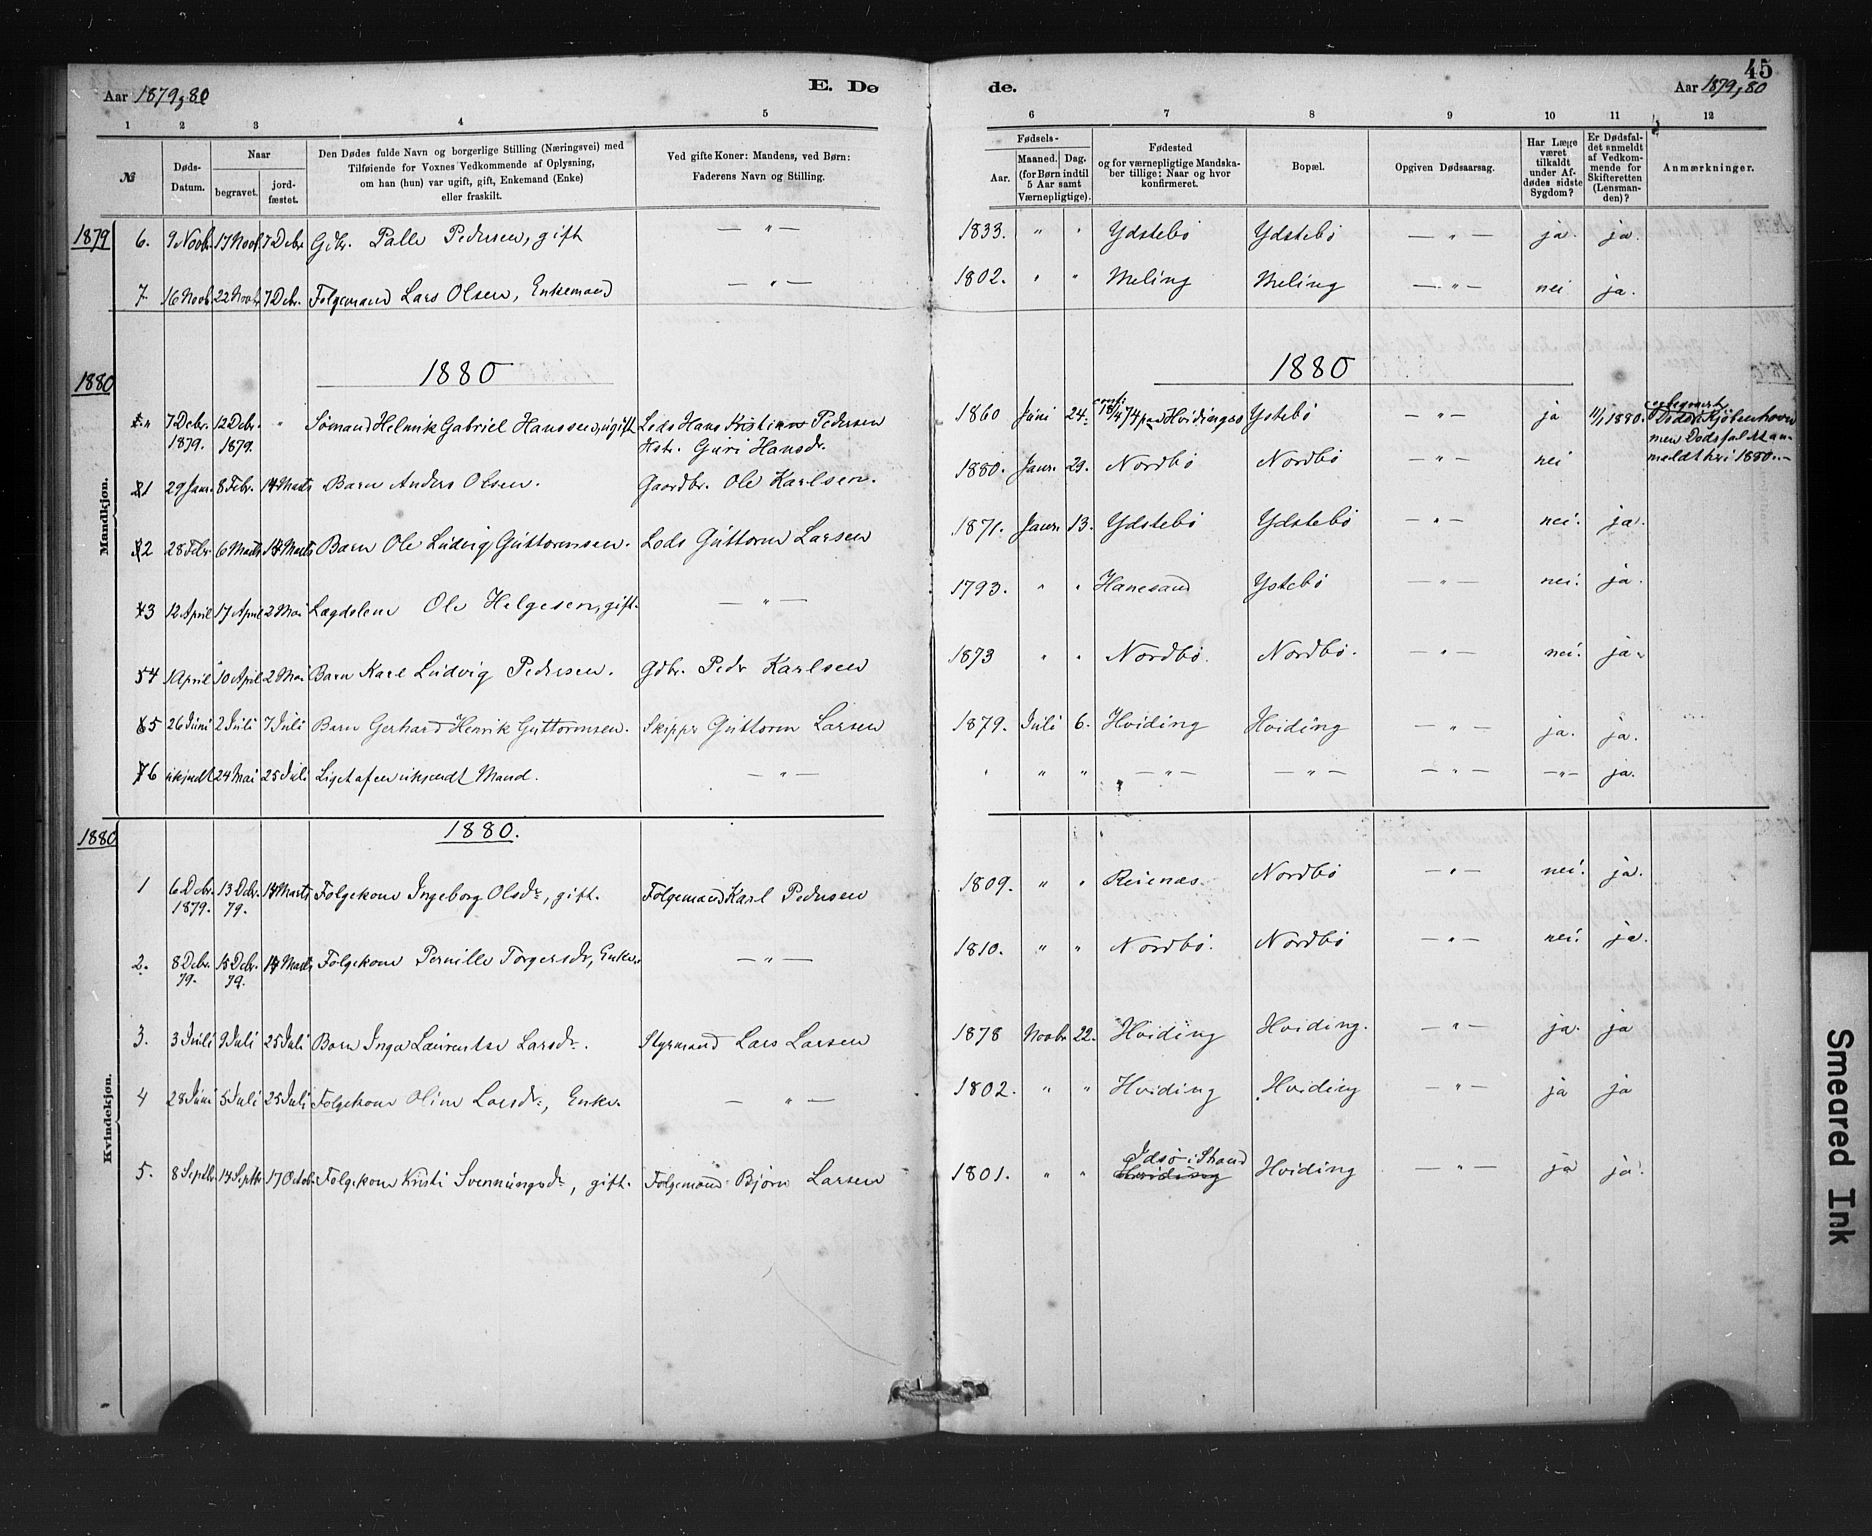 45
Aar 1879,80 E. Dø de. Aar 1879,80
1 2 3 4 5 6 7 8 9 10 11 12
№ Døds-Datum. Naar begravet. jordfæstet. Den Dødes fulde Navn og borgerlige Stilling (Næringsvei) med Tilføiende for Voxnes Vedkommende af Oplysning, om han (hun) var ugift, gift, Enkemand (Enke) eller fraskilt. Ved gifte Koner: Mandens, ved Børn: Faderens Navn og Stilling. Fødsels- Aar. Maaned. Dag. (for Børn indtil 5 Aar samt Værnepligtige). Fødested og for værnepligtige Mandskaber tillige: Naar og hvor konfirmeret. Bopæl. Opgiven Dødsaarsag. Har Læge været tilkaldt under Afdødes sidste Sygdom? Er Dødsfaldet anmeldt af Vedkommende for Skifteretten (Lensmanden)? Anmærkninger.
1879 6. 9 Novbr. 17 Novbr. 7 Debr. Palle Pedersen, gift — " — 1833. " " Ydstebø Ydstebø — " — ja. ja.
7 16 Novbr. 22 Novbr. 7 Debr. Folgemand Lars Olsen, Enkemand — " — 1802. " " Meling Meling — " — nei ja.
1880 1880 1880
Mandkjøn.
7 Debr. 1879. 12 Debr. 1879. " Sømand Helmik Gabriel Hanssen, ugift Lods Hans Kristian Pedersen Hstr. Guri Hansdr. 1860 Juni 24. conf. 18/4 74 paa Hvidingsø Ystebø — " — ja 11/1 1880. Døde i Kjøbenhavn men Dødsfaldet anmeldt her i 1880.
1 29 Janr. 8 Febr. 14 Marts Barn Anders Olsen. Gaardbr. Ole Karlsen. 1880. Janr. 29. Nordbø Nordbø — " — nei
2 28 Febr. 6 Marts 14 Marts Barn Ole Ludvig Guttormsen. Lods Guttorm Larsen 1871. Janr. 13. Ydstebø Ydstebø — " — nei. ja.
3 12 April 17 April 2 Mai Lægdslem Ole Helgesen, gift. — " — 1793. " " Hanesand Ystebø — " — nei. ja.
4 1 April 10 April 2 Mai Barn Karl Ludvig Pedersen. Gdbr. Peder Karlsen 1873 " " Nordbø. Nordbø. — " — nei. ja.
5 26 Juni 2 Juli 7 Juli Barn Gerhard Henrik Guttormsen. Skipper Guttorm Larsen 1879. Juli 6. Hviding Hviding — " — ja. ja.
6 ukjendt 24 Mai 25 Juli Liget af en ukjendt Mand. — " — " " " — " — — " — — " — — " — ja.
1880 1880.
Kvindekjøn.
1 6 Debr. 1879. 13 Debr. 79. 14 Marts Folgekone Ingeborg Olsdr., gift. Folgemand Karl Pedersen 1809. " " Reienæs. Nordbø — " — nei. ja.
2. 8 Debr. 79. 15 Debr. 79. 14 Marts Folgekone Pernille Torgersdr, Enke. — " — 1810. " " Nordbø. Nordbø — " — nei. ja.
3. 3 Juli 9 Juli 25 Juli Barn Inga Laurentse Larsdr. Styrmand Lars Larsen 1878 Novbr. 22. Hviding Hviding. — " — ja. ja
4 28 Juni 5 Juli 25 Juli Folgekone Oline Larsdr., Enke. — " — 1802. " " Hviding Hviding — " — ja ja
5. 8 Septbr. 14 Septbr 17 Octobr. Folgekone Kristi Svenningsdr, gift. Folgemand Bjørn Larsen 1801. " " Idsø i Strand Hviding Hviding — " — ja ja.
Smeared Ink